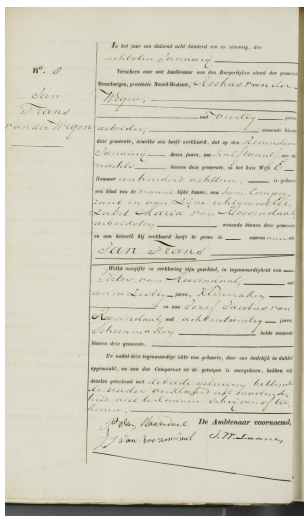 In het jaar een duizend acht honderd een en zeventig, den
achtsten January
Verscheen voor ons Ambtenaar van den Burgerlijken stand der gemeente
Steenbergen, provincie Noord-Brabant, Rochus van der
Wegen,
oud veertig jaren,
arbeider, wonende binnen
deze gemeente, dewelke ons heeft verklaard, dat op den zevenden
January dezes jaars, ten half twaalf ure des
nachts binnen deze gemeente, in het huis Wijk
Nummer een honderd achttien, is geboren
een kind van de mannelijke kunne, van hem Comparant
en van zijne echtgenoote,
Maria van Roosendaal,
arbeidster, wonende binnen deze gemeente
en aan hetwelk hij verklaard heeft te geven de voornamen van
Jan Frans
Welke aangifte en verklaring zijn geschied, in tegenwoordigheid van
Pieter van Roosendaal, oud
een en zestig jaren, Kleermaker,
en van Jozef Jacobus van
Roosendaal, oud achtentwintig jaren,
Schoenmaker, beide wonende
binnen deze gemeente.
En nadat deze tegenwoordige akte van geboorte, door ons dadelijk in dubbel
opgemaakt, en aan den Comparant en de getuigen is voorgelezen, hebben wij
dezelve geteekend met de beide getuigen, hebbende
de vader verklaard uit onwetend-
heid niet te kunnen schrijven of tee-
kenen.
P van Roosendaal De Ambtenaar voornoemd,
J J van Roosendaal J. W. Laane
nº. 8
Jan
Frans
van der Wegen